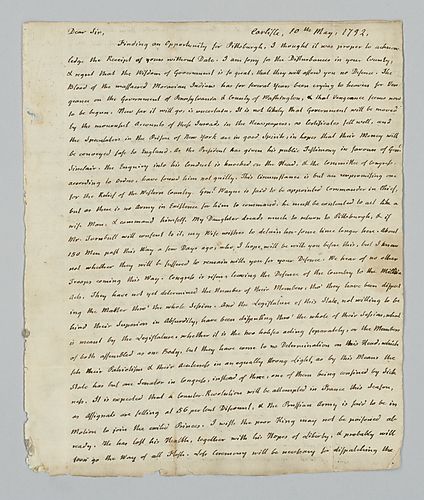 Dear Sir, Carlisle, 10th May, 1792.
Finding an Opportunity for Pittsburgh, I thought it was proper to acknow
ledge the Receipt of yours without Date. I am sorry for the Disturbances in your Country,
& regret that the Wisdom of Government is so great, that they will afford you no Defence. The
Blood of the massacred Moravian Indians has for several Years been crying to heaven for Ven
geance on the Government of Pennsylvania & County of Washington, & that Vengeance seems now
to be begun. How far it will go, is uncertain. It is not likely that Government will be moved
by the mournful Accounts of these Inroads in the Newspapers, as Certificates sell well, and
the Speculators in the Prison of New York are in good Spirits, in hopes that their Money will
be conveyed safe to England. As the President has given his public Testimony in favour of Genl
Sinclair, the Enquiry into his Conduct is knocked on the Head, & the Committee of Congress
according to Orders, have found him not guilty. This Circumstance is but an unpromising one
for the Relief of the Western Country. Genl Wayne is said to be appointed Commander in Chief,
but as there is no Army in Existence for him to command, he must be contented to act like a
wise Man, & command himself. My Daughter dreads much to return to Pittsburgh, & if
Mr Turnbull will consent to it, my Wife wishes to detain her some time longer here. About
150 Men past this Way a few Days ago, who, I hope, will be with you before this, but I know
not whether they will be suffered to remain with you for your Defence. We hear of no other
Troops coming this Way. Congress is risen, leaving the Defence of the Country to the Militia
Acts. They have not yet determined the Number of their Members, tho' they have been disput
ing the Matter thro' the whole Session. And the Legislature of this State, not willing to be
behind their Superiors in Absurdity, have been disputing thro' the whole of their Session, what
is meant by the Legislature, whether it is the two houses acting separately, or the Members
of both assembled as one Body, but they have come to no Determination on this Head, which
sets their Patriotism & their Acuteness in an equally strong Light, as by this Means the
State has but one Senator in Congress, instead of two, one of them being confined by Sick
ness. It is expected that a Counter-Revolution will be attempted in France this Season,
as Assignats are selling at 56 per Cent Discount, & the Prussian Army is said to be in
Motion to join the exiled Princes. I wish the poor King may not be poisoned al
ready. He has lost his Health, together with his Hopes of Liberty, & probably will
soon go the Way of all Flesh. Less Ceremony will be necessary for dispatching the